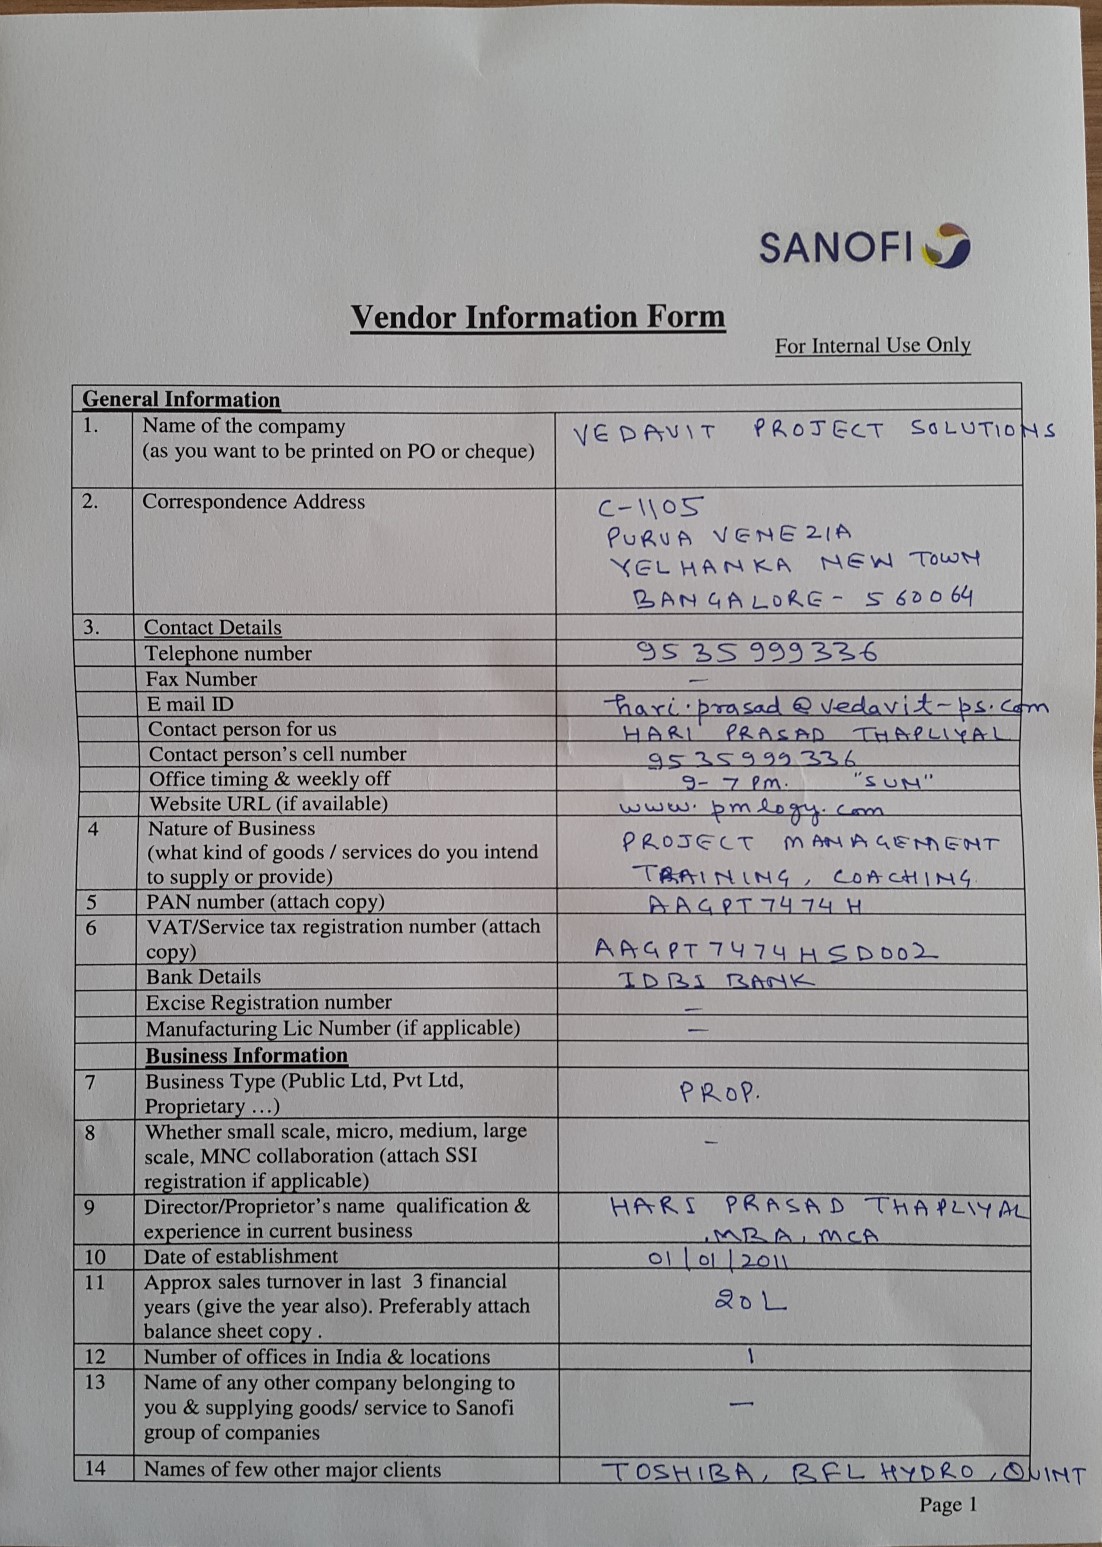 SANOFI
Vendor Information Form
For Internal Use Only
General Information
1. Name of the compamy VEDAVIT PROJECT SOLUTIONS
(as you want to be printed on PO or cheque)
2. Correspondence Address C-1105
PURVA VENEZIA
YELHANKA NEW TOWN
BANGALORE - 560064
3. Contact Details
Telephone number 9535999336
Fax Number —
E mail ID hari.prasad@vedavit-ps.com
Contact person for us HARI PRASAD THAPLIYAL
Contact person's cell number 9535999336
Office timing & weekly off 9- 7 PM. "SUN"
Website URL (if available) www.pmlogy.com
4 Nature of Business PROJECT MANAGEMENT
(what kind of goods / services do you intend
to supply or provide) TRAINING, COACHING
5 PAN number (attach copy) AAGPT7474H
6 VAT/Service tax registration number (attach
copy) AAGPT7474HSD002
Bank Details IDBI BANK
Excise Registration number —
Manufacturing Lic Number (if applicable) —
Business Information
7 Business Type (Public Ltd, Pvt Ltd, PROP.
Proprietary ...)
8 Whether small scale, micro, medium, large –
scale, MNC collaboration (attach SSI
registration if applicable)
9 Director/Proprietor's name qualification & HARI PRASAD THAPLIYAL
experience in current business MBA, MCA
10 Date of establishment 01/01/2011
11 Approx sales turnover in last 3 financial
years (give the year also). Preferably attach 20L
balance sheet copy .
12 Number of offices in India & locations 1
13 Name of any other company belonging to
you & supplying goods/ service to Sanofi —
group of companies
14 Names of few other major clients TOSHIBA, BFL HYDRO, QUINT
Page 1